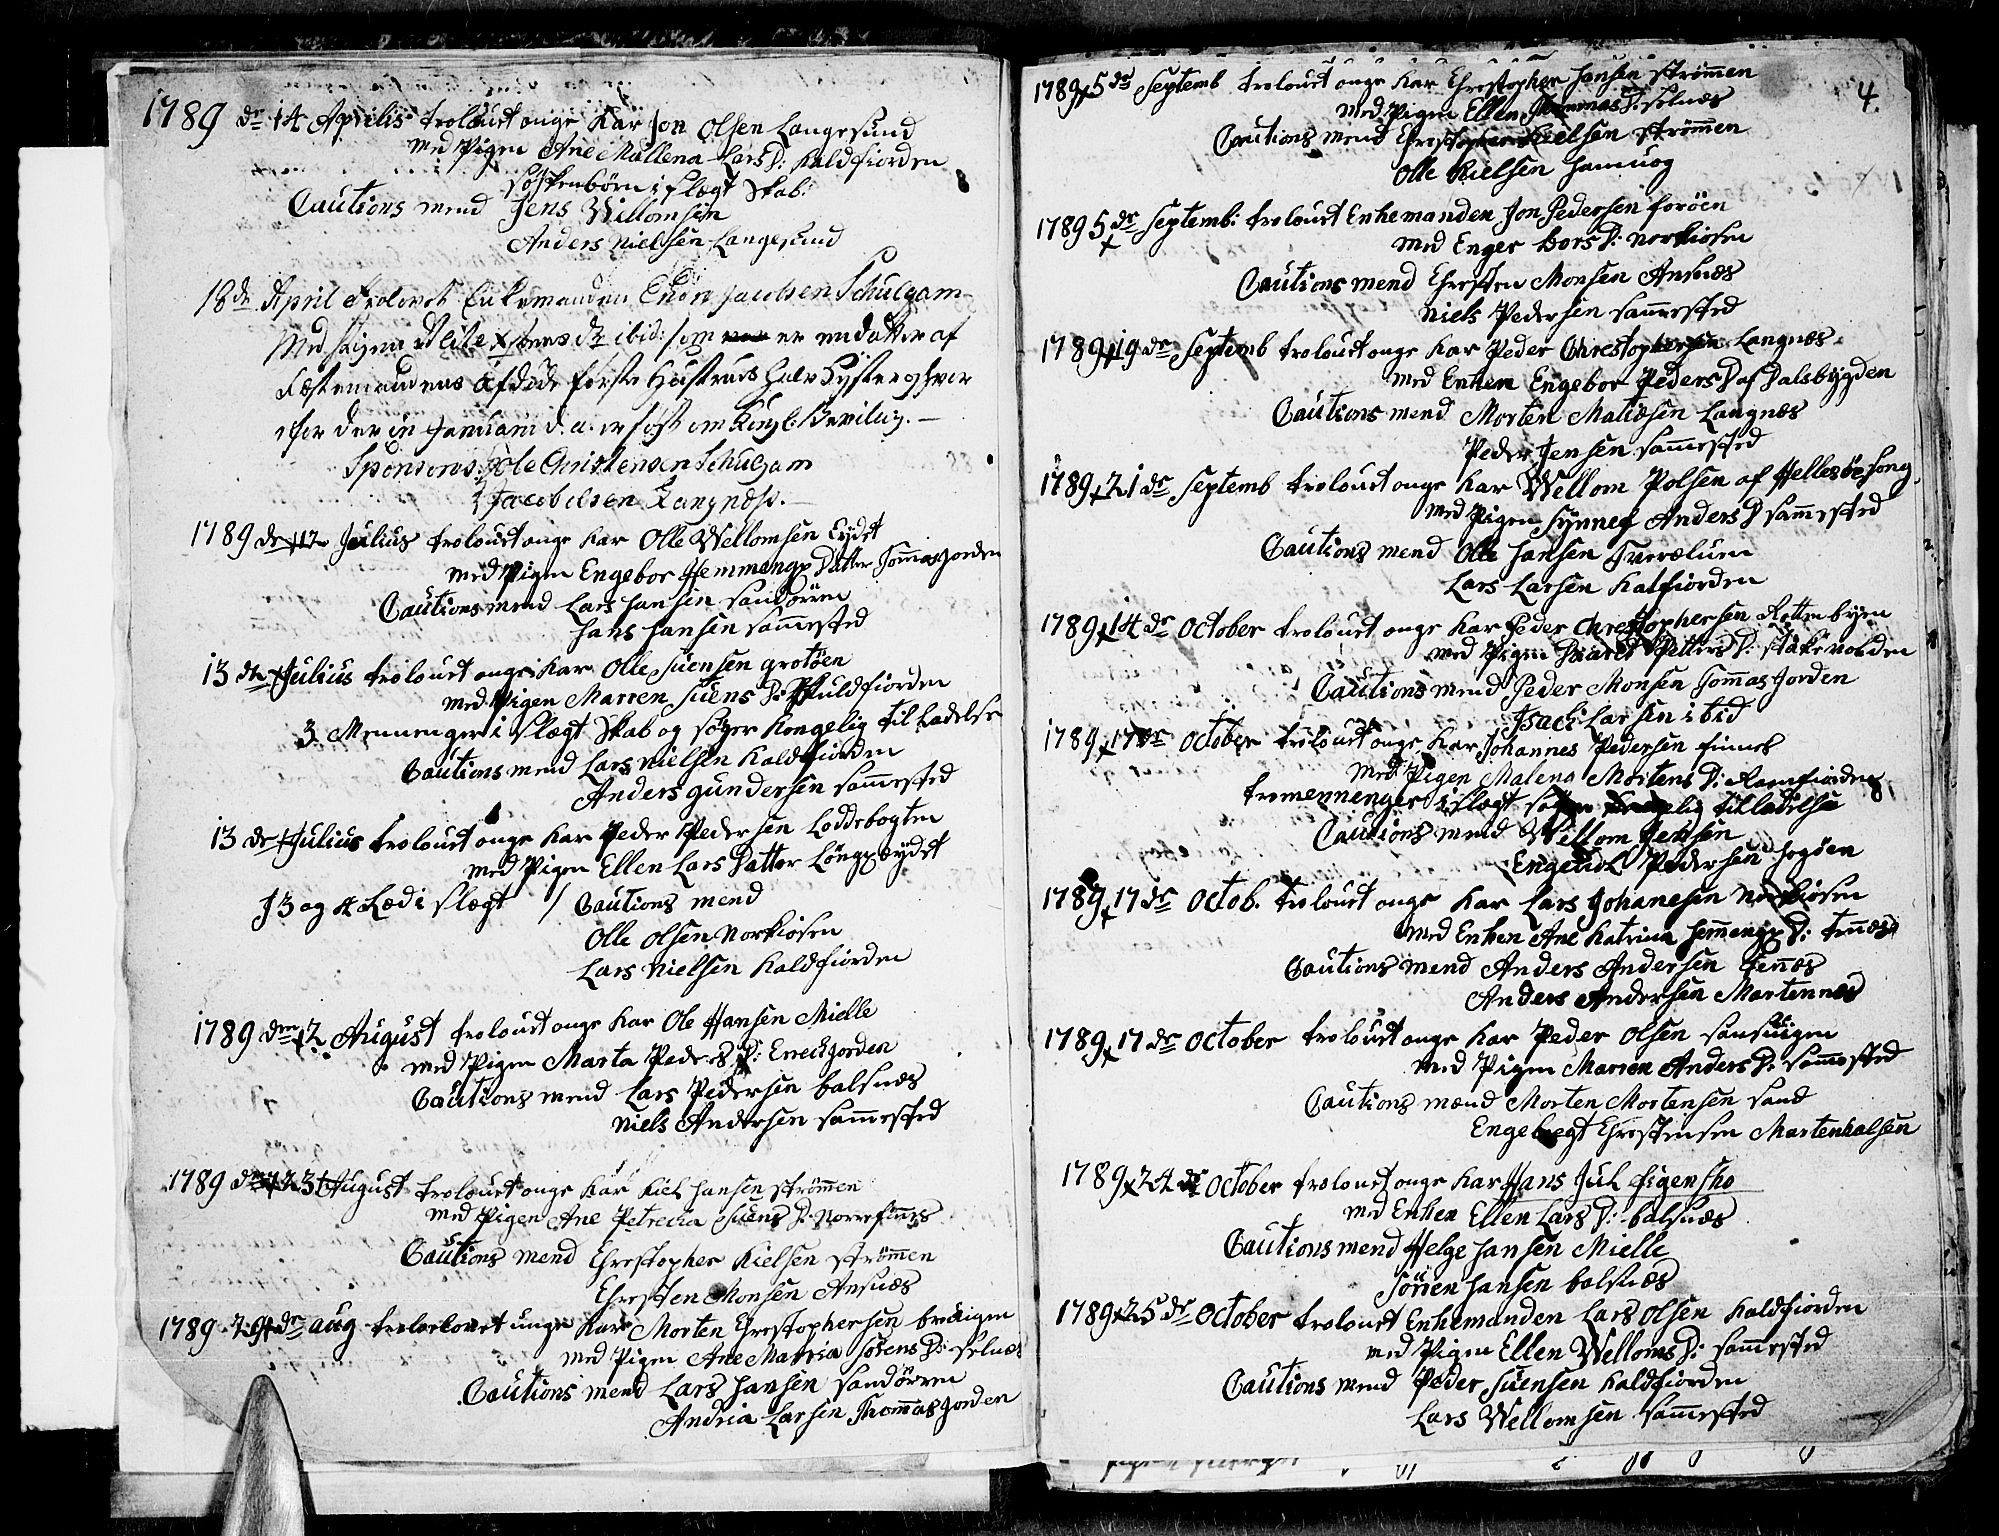 1789 de 14 Aprilis trolouet onge Kar Jon Olsen Langesund
med Pigen Ane Mallena Lars D: Kaldfiorden
søskenbörn i slægt Skab:
Cautions mend Jens Willomsen
Anders Nielsen Langesund
18de April Trolovet Enkemanden Enon Jacobsen Schulgam
Med Pigen ibid: som er en datter af
Festemandens Afdøde förste Hustrues halv Syster og hver
for den in Januarii d. a. er søgt om Kongl: Bevilg. —
Sponsores: Ole Christensen Schulgam
Jacob Olsen Langnæs. —
1789 de 12 Julius trolouet onge Kar Olle Wellomsen Eydet
med Pigen Engebor Hemmengs Datter Tommasjorden
Cautions mend Lars Hansen Sandören
Hans Hansen sammested
13 de Julius trolouet onge Kar Olle Suensen grotöen
med Pigen Marren Suens D: Kuldfiorden
3 Mennenger i slægt Skab og söger Kongelig til Ladelse
Cautions mend Lars Nielsen Kaldfiorden
Anders Gundersen sammested
13 de Julius trolouet onge Kar Peder Pedersen Loddebogten
med Pigen Ellen Lars Datter Löngseydet
J 3 og 4 Led i slægt / Cautions mend
Olle Olsen Norkiosen
Lars Nielsen Kaldfiorden
1789 den 2 August trolouet onge Kar Ole Hansen Mielle
med Pigen Marta Peders D: Erreckjorden
Cautions mend Lars Pedersen balsnæs
Niels Andersen sammested
1789 de 23 August trolouet onge Kar Kiel Hansen strömmen
med Pigen Ane Petrecia Suens D: Norrefinnes
Cautions mend Chrestopher Kielsen strömmen
Chresten Monsen Ansnæs
1789 29 de aug trolouet unge Kar Morten Chrestophersen brevigen
med Pigen Ane Marria Sörens D: Selnæs
Cautions mend Lars Hansen Sandören
Andria Larsen Thommasjorden
4.
1789 5 de Septemb trolouet onge Kar Chrestopher Hansen strömmen
med Pigen Ellen Thommas D: Selnæs
Cautions mend Chrestopher Kielsen strömmen
Olle Kielsen
1789 5 de Septemb: trolouet Enkemanden Jon Pedersen foröen
med Enger bors D: Norkiosen
Cautions mend Chresten Monsen Ansnæs
Niels Pedersen sammested
1789 19 de Septemb trolouet onge Kar Peder Chrestophersen Langnæs
med Enken Engebor Peders D af Dalsbygden
Cautions mend Morten Matiesen Langnæs
Peder Jensen sammested
1789 21 de Septemb trolouet onge Kar Wellom Polsen af Hellesöe song
med Pigen Synnef Anders D sammested
Cautions mend Olle Hansen Tverælven
Lars Larsen Kalfiorden
1789 14 de October trolouet onge Kar Peder Chrestophersen Rottenbyen
med Pigen Maret Petters D: stakevolden
Cautions mend Peder Monsen Tommasjorden
Isach Larsen ibid
1789 17 de October trolouet onge Kar Johannes Pedersen finnes
med Pigen Malena Mortens D: Ramfiorden
tremennenger i slægt söger Kongelig tilladelse
Cautions mend Wellom Jensen
Engebol Pedersen
1789 17 de Octob. trolouet onge Kar Lars Johanesen Norkiosen
med Enken Ane Katrina Hemmengs D: Tennæs
Cautions mend Anders Andersen Tennæs
Anders Andersen Martennæs
1789 17 de October trolouet onge Kar Peder Olsen sansuigen
med Pigen Marren Anders D: sammested
Cautions mænd Morten Mortensen sand
Engebregt Chrestensen Martenhalsen
1789 24 de October trolouet onge Kar Hans Jul
med Enken Ellen Lars D: balsnæs
Cautions mend Helge Hansen Mielle
Sören Hansen balsnæs
1789 25 de October trolouet Enkemanden Lars Olsen Kaldfiorden
med Pigen Ellen Welloms D: sammested
Cautions mend Peder Suensen Kaldfiorden
Lars Wellomsen sammested